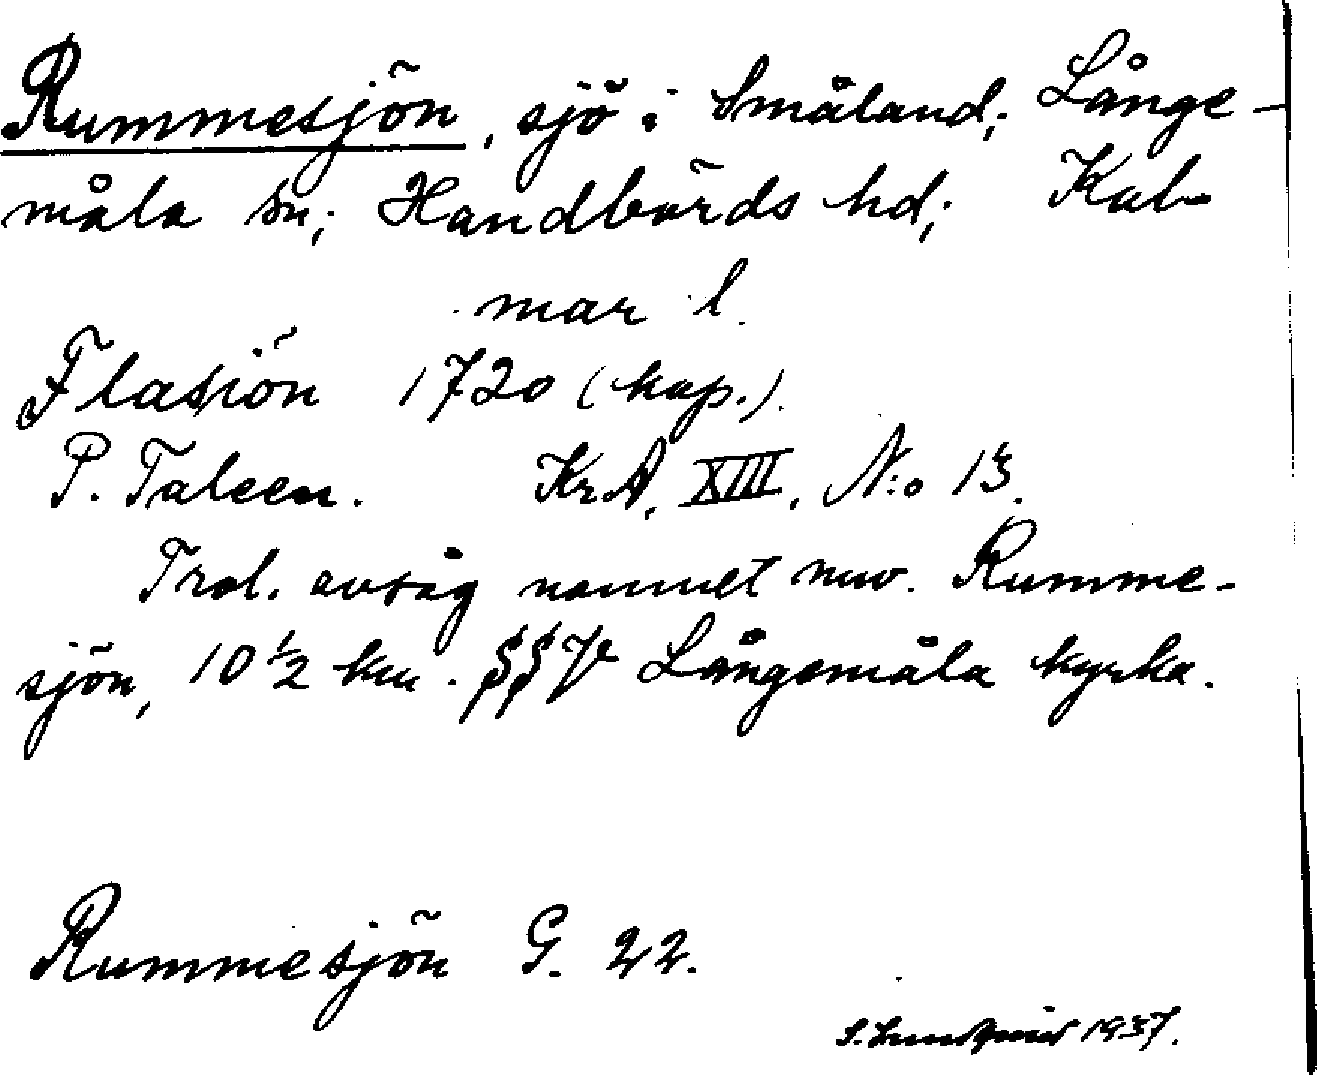 Rummesjön, sjö i Småland; Långe-
måla sn; Handbörds hd; Kal-
mar l.
Flasiön 1720 (kap.).
P. Taleen. KrA, XIII, N:o 13.
Trol. avsåg namnet nuv. Rumme-
sjön, 10 1/2 km. SSV Långemåla kyrka.
Rummesjön G. 22.
S. Lundqvist 1937.